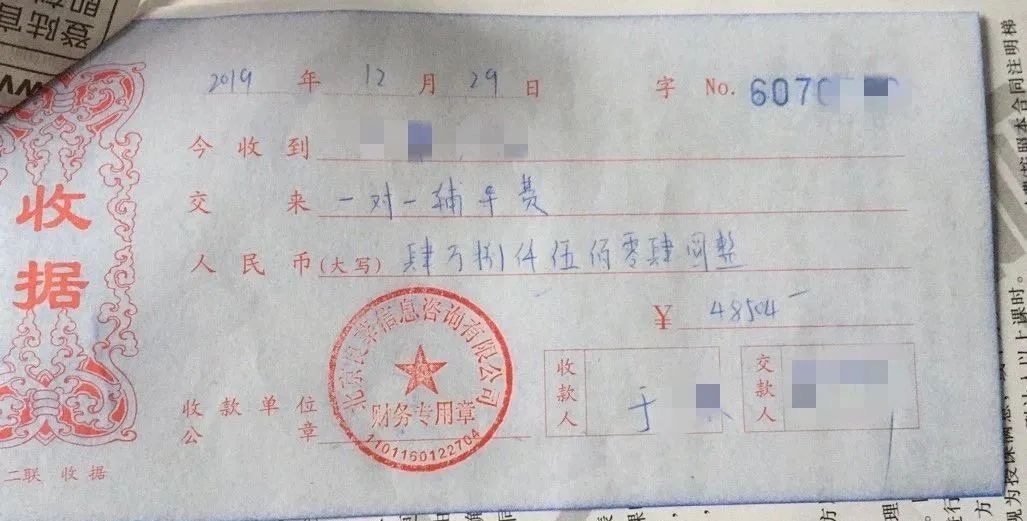 收据
2019 年 12 月 29 日 字 No. 607
今收到
交来 一对一辅导费
人民币(大写) 肆万捌仟伍佰零肆圆整
¥ 48504
收款单位
公章
信息咨询有限公司
财务专用章
1101160122704
收款人 于
交款人
二联 收据